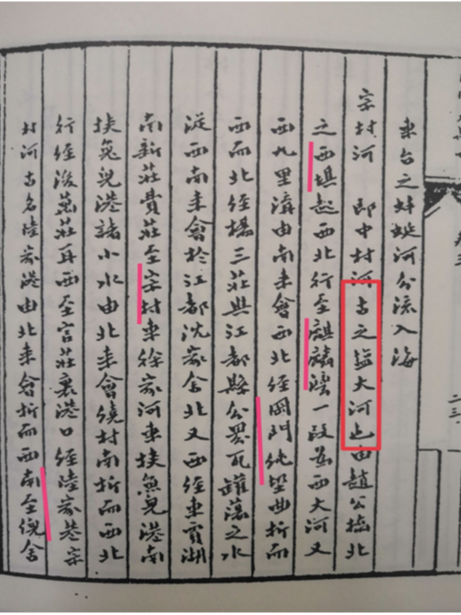 東台之蚌蜒河分流入海
宗村河 即中村河古之塩大河也由趙公橋北
之西堤起西北行至麒麟灣一段為西大河又
西九里濟由南來會西北經岡門純堅曲折而
西而北經楊三莊與江都縣分界瓦罐蕩之水
從西南來會於江都沈家舍北又西經東賈湖
南新莊費莊至宗村東徐家河東挟魚兒港南
挟兔兒港諸小水由北來會繞村南折而西北
行經後萬莊再西至官莊裏港口經陸家巷宗
村河古名陸家港由北來會折而西南至倪舍